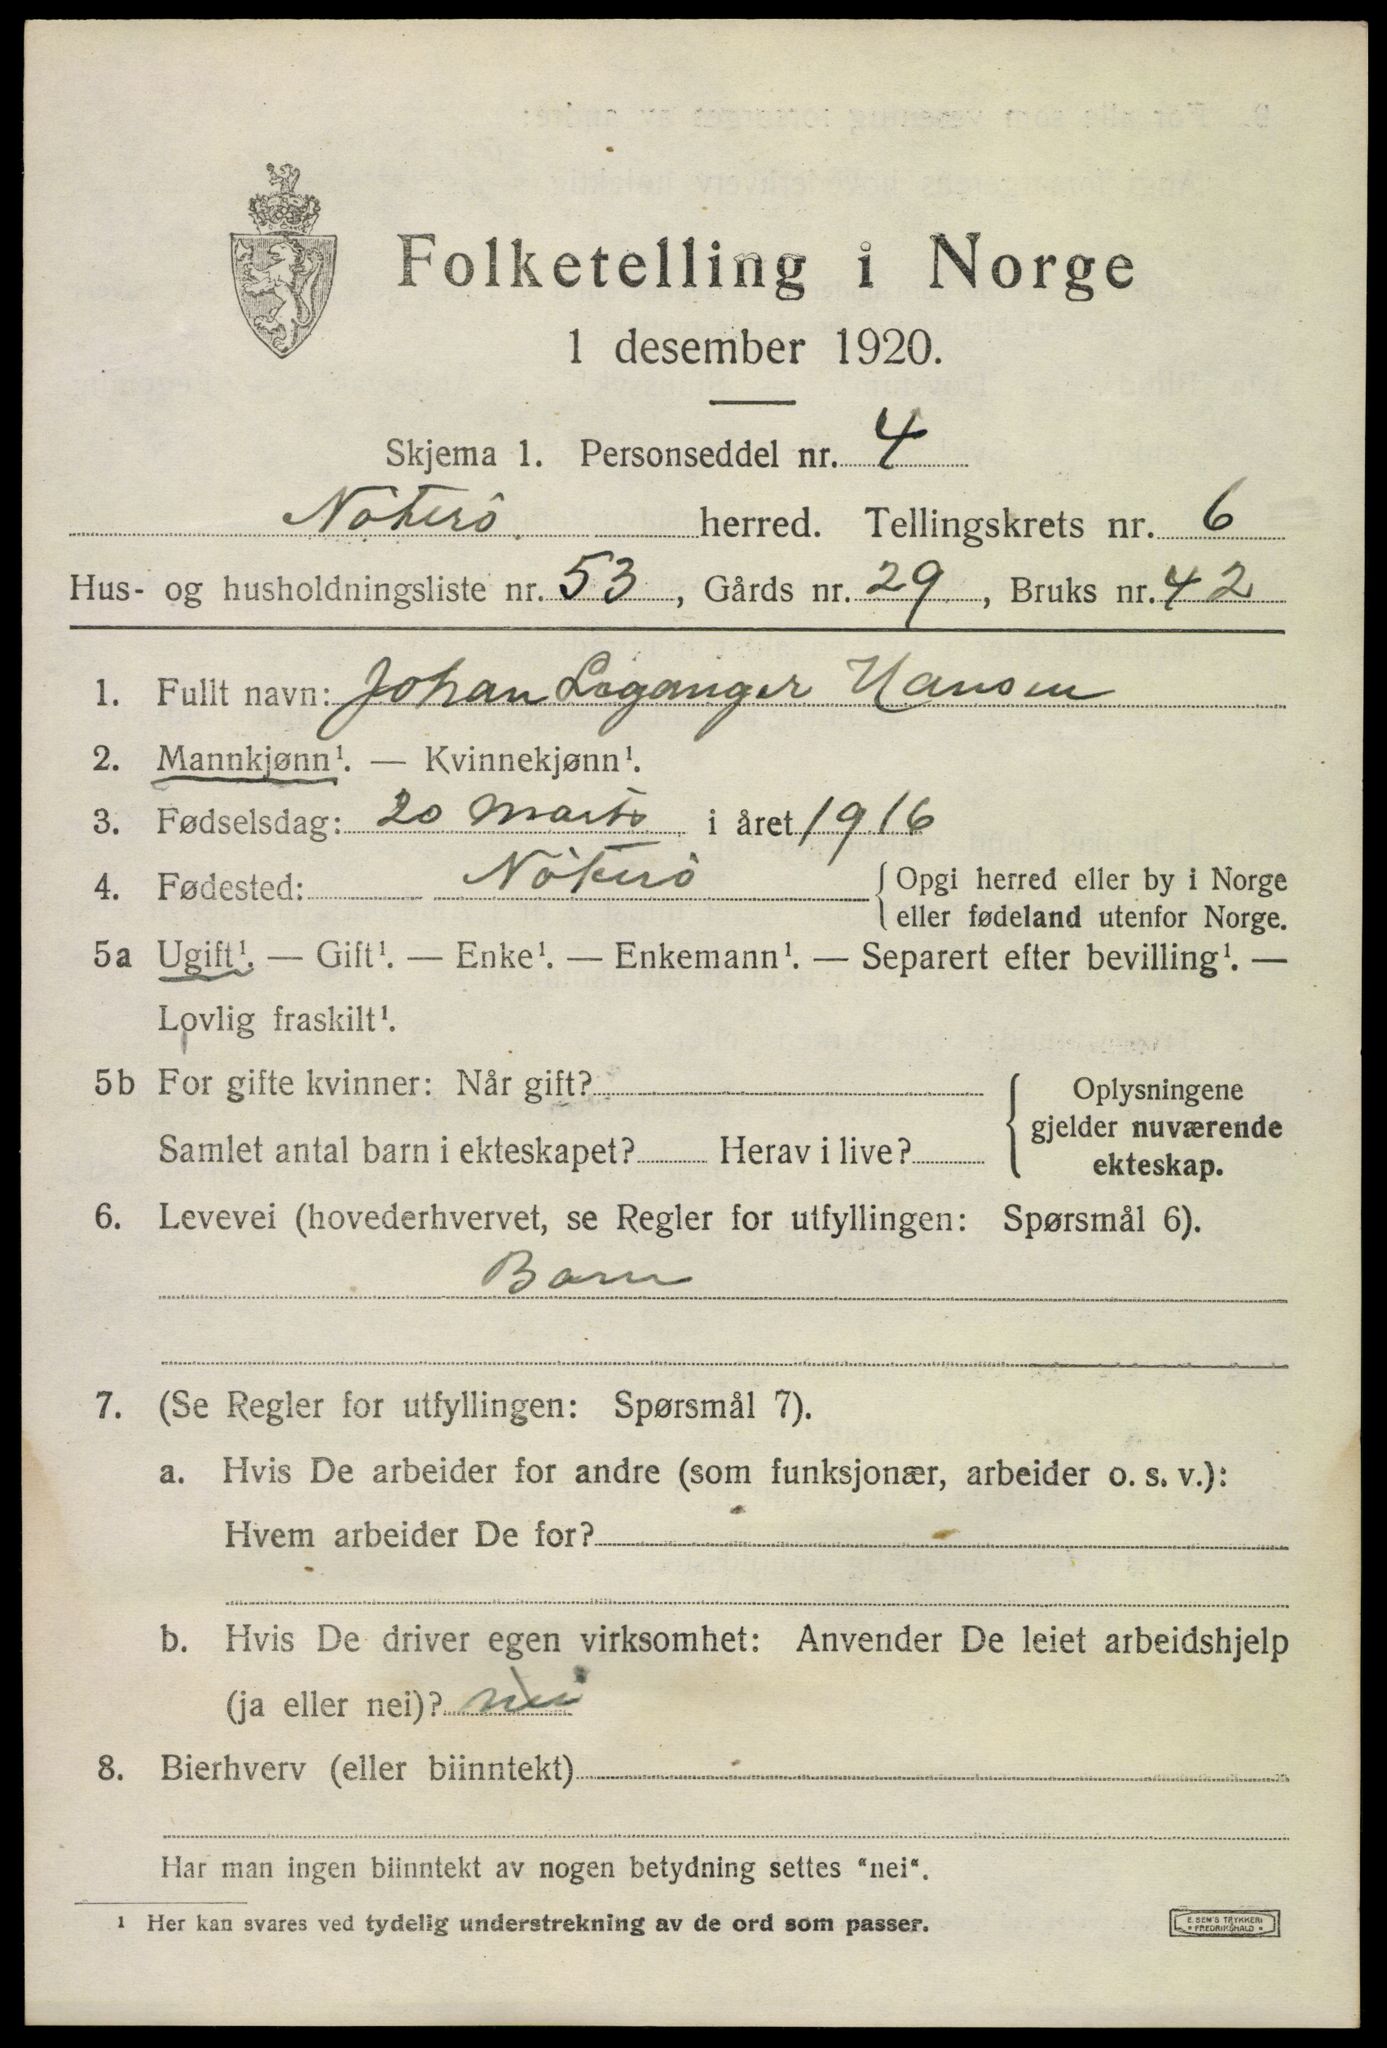 Folketelling i Norge
1 desember 1920.
Skjema 1. Personseddel nr. 4
Nøterö herred. Tellingskrets nr. 6
Hus- og husholdningsliste nr. 53, Gårds nr. 29, Bruks nr. 42
1. Fullt navn: Johan Leganger Hansen
2. Mannkjønn¹. — Kvinnekjønn¹.
3. Fødselsdag: 20 marts i året 1916
4. Fødested: Nøterö {Opgi herred eller by i Norge
eller fødeland utenfor Norge.
5a Ugift¹. — Gift¹. — Enke¹. — Enkemann¹. — Separert efter bevilling¹. —
Lovlig fraskilt¹.
5b For gifte kvinner: Når gift?
Samlet antal barn i ekteskapet? Herav i live?
Oplysningene
gjelder nuværende
ekteskap.
6. Levevei (hovederhvervet, se Regler for utfyllingen: Spørsmål 6).
Barn
7. (Se Regler for utfyllingen: Spørsmål 7).
a. Hvis De arbeider for andre (som funksjonær, arbeider o. s. v.):
Hvem arbeider De for?
b. Hvis De driver egen virksomhet: Anvender De leiet arbeidshjelp
(ja eller nei)? nei
8. Bierhverv (eller biinntekt)
Har man ingen biinntekt av nogen betydning settes "nei".
¹ Her kan svares ved tydelig understrekning av de ord som passer.
E. SEM'S TRYKKERI
* FREDRIKSHALD *